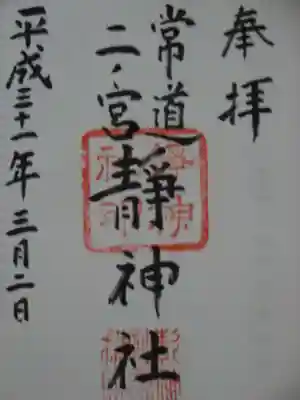 奉拝
常道
二ノ宮靜神社
平成三十一年三月二日